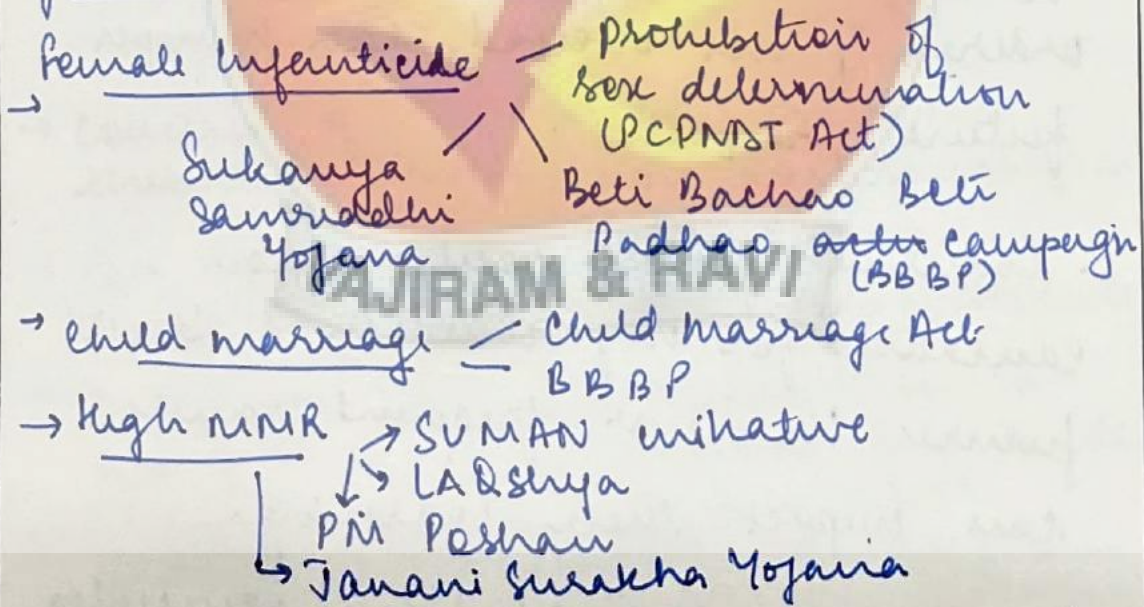 Female Infanticide — Prohibition of
sex determination
(PCPNDT Act)
→
Sukanya
Samriddhi
Yojana
Beti Bachao Beti
Padhao campaign
(BBBP)
VAJIRAM & RAVI
→ Child marriage — Child Marriage Act
BBBP
→ High MMR → SUMAN initiative
→ LAQshya
PM Poshan
→ Janani Surakha Yojana